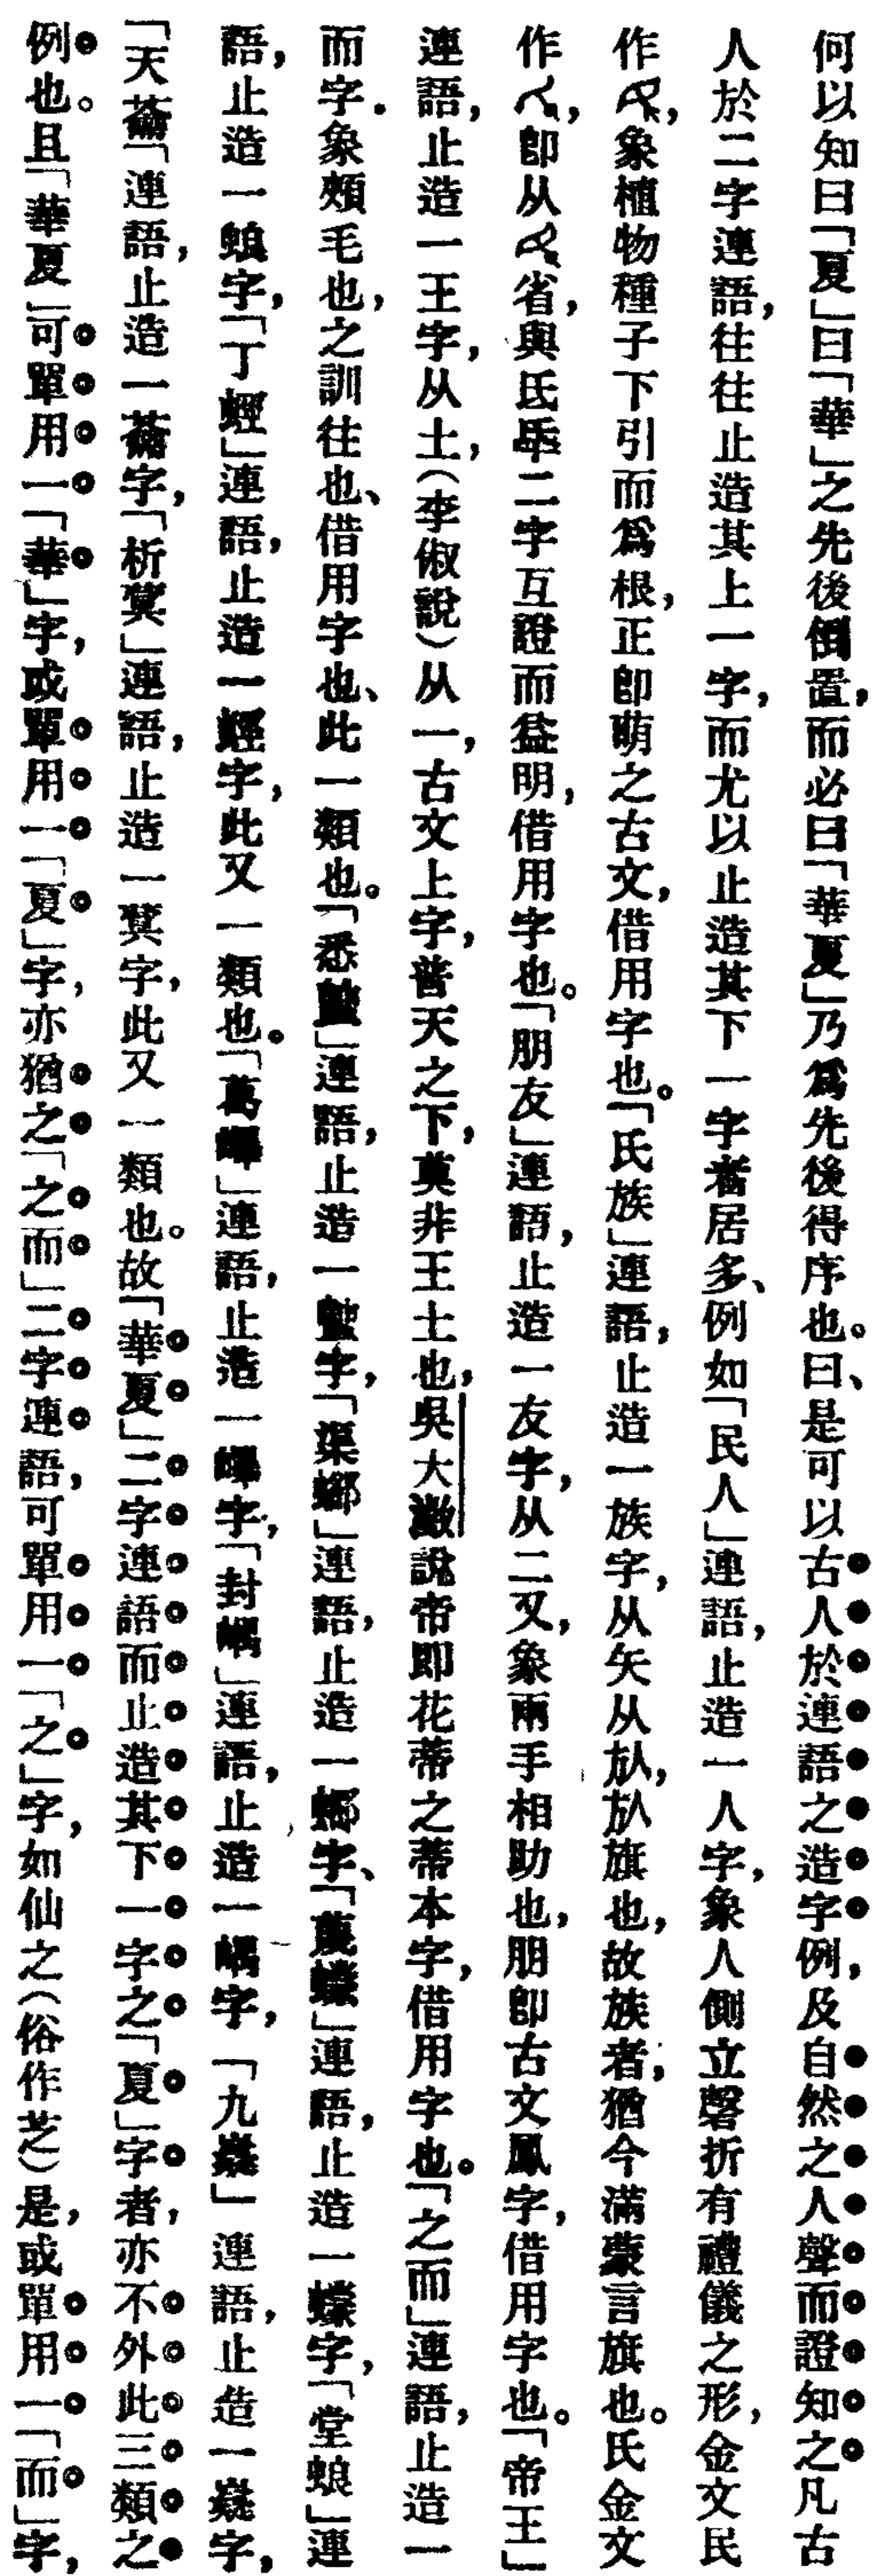 何以知曰「夏」曰「華」之先後倒置，而必曰「華夏」乃爲先後得序也。曰、是可以古人於連語之造字例，及自然之人聲而證知之凡古
人於二字連語，往往止造其上一字，而尤以止造其下一字者居多、例如「民人」連語，止造一人字，象人側立磬折有禮儀之形，金文民
作，象植物種子下引而爲根，正卽萌之古文，借用字也。「氏族」連語，止造一族字，从矢从㫃，㫃旗也，故族者，猶今滿蒙言旗也。氏金文
作，卽从省，與氏氒二字互證而益明，借用字也。「朋友」連語，止造一友字，从二又，象兩手相助也，朋卽古文鳳字，借用字也。「帝王」
連語，止造一王字，从土，（李俶說）从一，古文上字，普天之下，莫非王土也，吳大澂說帝即花蒂之蒂本字，借用字也。「之而」連語，止造一
而字．象頰毛也，之訓往也、借用字也、此一類也。「悉𧎴」連語，止造一𧎴字，「渠螂」連語，止造一螂字、「蔑蠓」連語，止造一蠓字，「堂蜋」連
語，止造一蜋字，「丁蛵」連語，止造一蛵字，此又一類也。「葛嶧」連語，止造一嶧字，「封嵎」連語，止造一嵎字，「九嵏」連語，止造一嵏字，
「天蘥」連語，止造一蘥字，「析蓂」連語，止造一蓂字，此又一類也。故「華夏」二字連語而止造其下一字之「夏」字者，亦不外此三類之
例也。且「華夏」可單用一「華」字，或單用一「夏」字，亦猶之「之而」二字連語，可單用一「之」字，如仙之（俗作芝）是，或單用一「而」字，